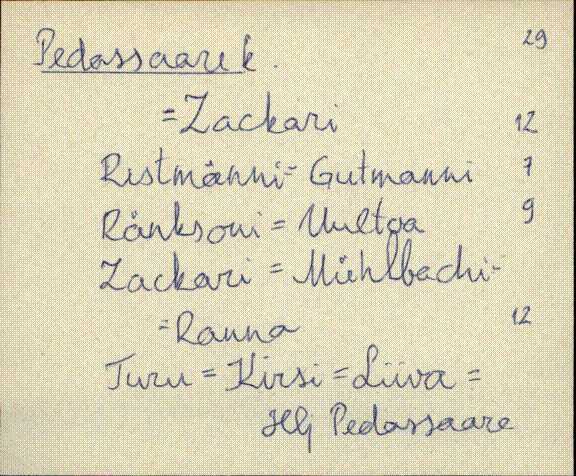 Pedassaare k. 29
=Zackari 12
Ristmänni= Gutmanni 7
Ränksoni = Uultoa 9
Zackari = Mühlbachi-
=Ranna 12
Turu = Kirsi = Liiva =
Hlj Pedassaare